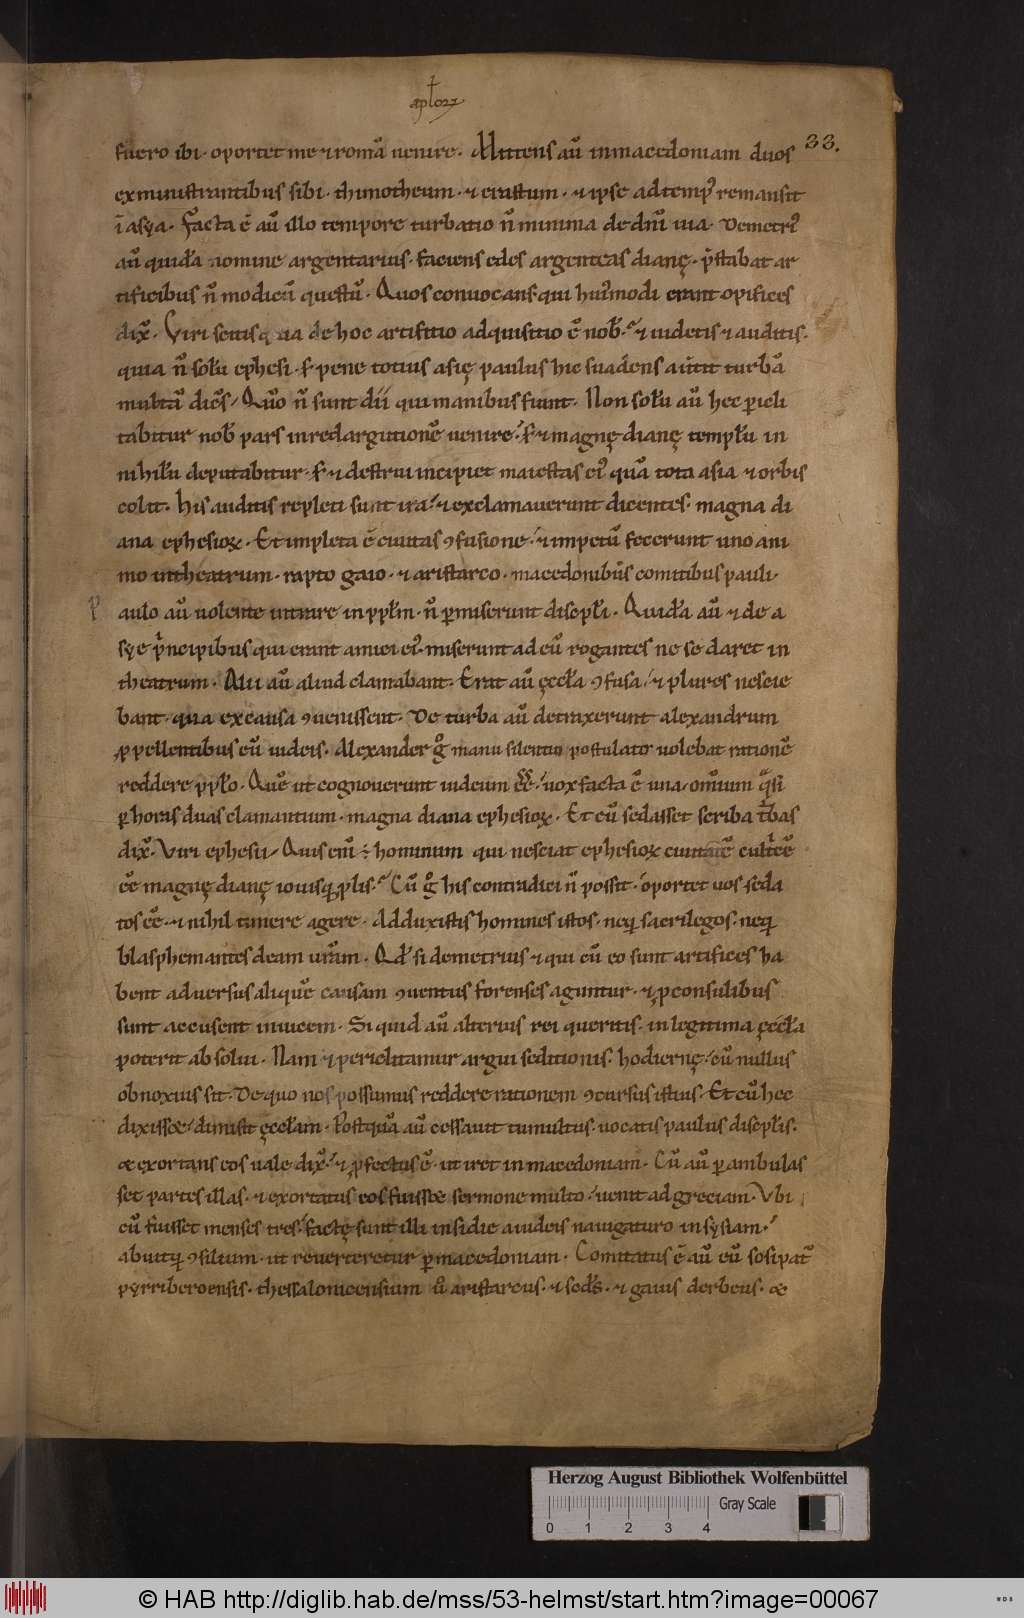 apl̅oꝝ
33.
fuero ibi· oportet me ⁊ romā uenire. Mittens aū in macedoniam duos
ex ministrantibus sibi· thimotheum· ⁊ erastum· ⁊ ipse ad temp᷒ remansit
ī asẏa· Facta ē aū illo tempore turbatio n̄ minima de dn̄i uia. Demetri᷒
aū quidā nomine argentarius· faciens edes argenteas dianę· p̄stabat ar
tificibus n̄ modicū questū· Quos conuocans· qui hui᷒modi erant opifices
dix̄· Viri scitis quia de hoc artifitio adquisitio ē nob̅· ⁊ uidetis ⁊ auditis·
quia n̄ solū ephesi· s; pene totius asię paulus hic suadens auertit turbā
multā dicēs· Qūo n̄ sunt dii qui manibus fiunt· Non solū aū hec ꝑicli
tabitur nob̅ pars in redargutionē uenire· s; ⁊ magnę dianę templū in
nihilū deputabitur· s; ⁊ destrui incipiet maiestas ei᷒ quā tota asia ⁊ orbis
colit· His auditis repleti sunt ira· ⁊ exclamauerunt dicentes· magna di
ana ephesioꝝ· Et impleta ē ciuitas ꝯfusione· ⁊ impetū fecerunt uno ani
mo in theatrum· rapto gaio· ⁊ aristarco· macedonibus comitibus pauli·
p
aulo aū uolente intrare in pplm̄· n̄ ꝑmiserunt discipl̅i· Quidā aū ⁊ de a
sẏe pͥncipibus qui erant amici ei᷒· miserunt ad eū rogantes ne se daret in
theatrum· Alii aū aliud clamabant· Erat aū ęccl̅a ꝯfusa· ⁊ plures nescie
bant· qua ex causa ꝯuenissent· De turba aū detraxerunt alexandrum
ꝓpellentibus eū iudeis· Alexander gͦ manu silentio postulato uolebat rationē
reddere ppl̅o· Quē ut cognouerunt iudeum eē· uox facta ē una· omnium qͣsi
ꝑ horas duas clamantium· magna diana ephesioꝝ· Et cū sedasset scriba tͬbas
dix̄· Viri ephesii· Quis enī ÷ hominum qui nesciat ephesioꝝ ciuitatē cultͥcē
eē magnę dianę iouisq; ꝓlis· Cū gͦ his contradici n̄ possit· oportet uos seda
tos eē· ⁊ nihil timere agere· Adduxistis homines istos· neq; sacrilegos· neq;
blasphemantes deam uram̄· Qd̄ si demetrius ⁊ qui cū eo sunt artifices ha
bent aduersus aliquē causam ꝯuentus forenses aguntur· ⁊ ꝓconsulibus
sunt accusent inuicem· Si quid aū alterius rei queritis· in legitima ęccl̅a
poterit absolui· Nam ⁊ periclitamur argui seditionis· hodiernę· cū nullus
obnoxius sit· De quo nos possumus reddere rationem ꝯcursus istius· Et cū hec
dixisset· dimisit ęccl̅am· Postquā aū cessauit tumultus· uocatis paulus discipl̅is·
⁊ exortans eos uale dix̄· ⁊ ꝓfectus ē· ut iret in macedoniam· Cū aū ꝑambulas
set partes illas· ⁊ exortatus eos fuisset sermone multo· uenit ad greciam· Vbi
cū fuisset menses tres· factę sunt illi insidie a iudeis nauigaturo in sẏriam·
abuitq; ꝯsilium· ut reuerteretur ꝑ macedoniam· Comitatus ē aū eū sosipatͬ
pẏrri beroensis· thessalonicensium u̅o aristarcus· ⁊ secds̄· ⁊ gaius derbeus· ⁊
Herzog August Bibliothek Wolfenbüttel
Gray Scale
0 1 2 3 4
© HAB http://diglib.hab.de/mss/53-helmst/start.htm?image=00067